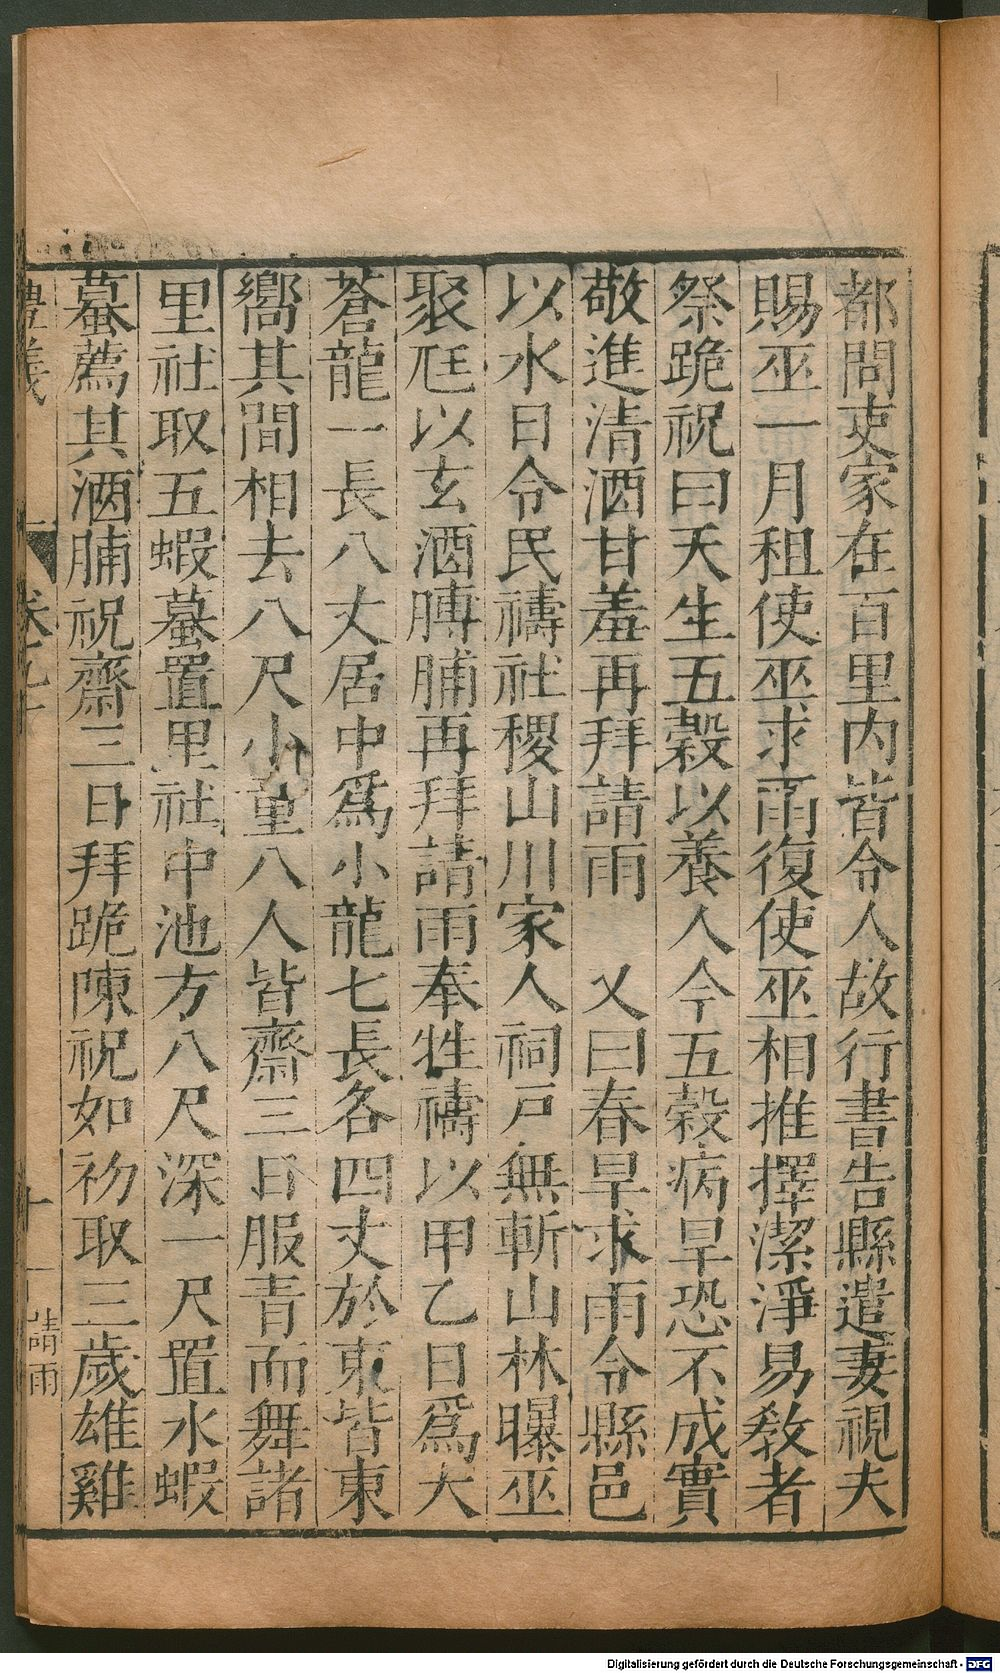 都問吏家在百里內皆令人故行書告縣遣妻視夫
賜巫一月租使巫求雨復使巫相推擇潔淨易教者
祭跪祝曰天生五穀以養人今五穀病旱恐不成實
敬進清酒甘羞再拜請雨　又曰春旱求雨令縣邑
以水日令民禱社稷山川家人祠戸無斬山林曝巫
聚尫以玄酒膊脯再拜請雨奉牲禱以甲乙日爲大
蒼龍一長八丈居中爲小龍七長各四丈於東皆東
嚮其間相去八尺小童八人皆齋三日服青而舞諸
里社取五蝦蟇置里社中池方八尺深一尺置水蝦
蟇薦其酒脯祝齋三日拜跪陳祝如初取三歲雄雞
禮義
十
請雨
Digitalisierung gefördert durch die Deutsche Forschungsgemeinschaft - DFG